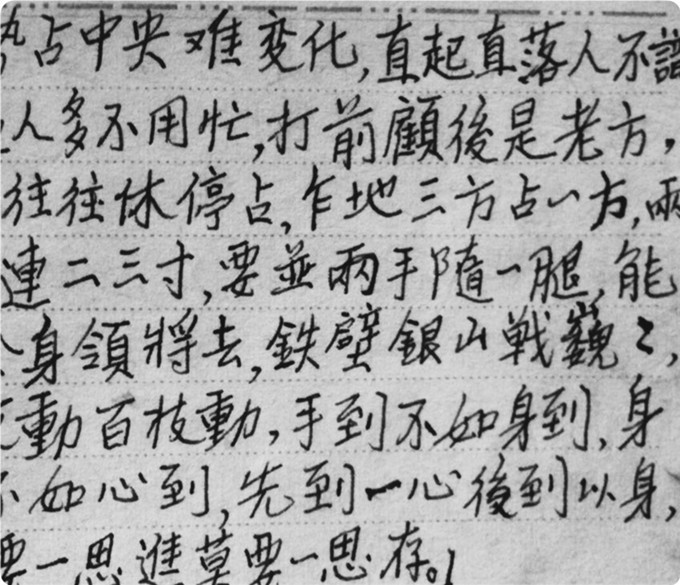 占中央难変化,直起直落人不識
人多不用忙,打前顧後是老方,
往往休停占,乍地三方占一方,兩
連二三寸,要並兩手隨一腿,能
身領將去,鉄壁銀山戰巍々,
動百枝動,手到不如身到,身
不如心到,先到一心後到以身,
要一思進莫要一思存。